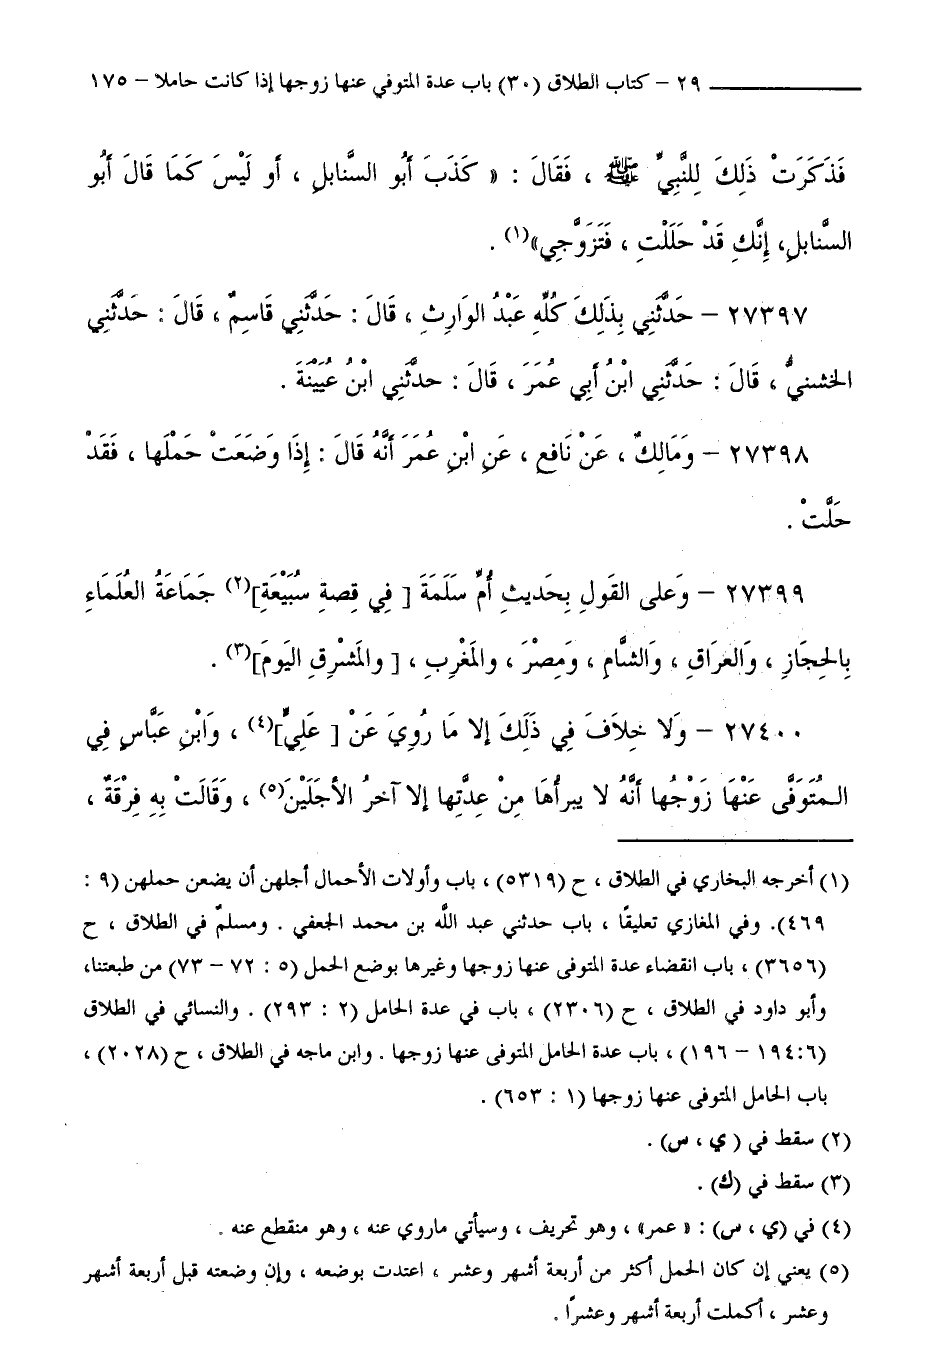 ٢٩ – كتاب الطلاق (٣٠) باب عدة المتوفي عنها زوجها إذا كانت حاملا – ١٧٥
فَذَكَرَتْ ذَلِكَ لِلنَّبِيِّ ﷺ ، فَقَالَ : « كَذَبَ أَبُو السَّنابلِ ، أو لَيْسَ كَمَا قَالَ أَبُو
السَّنابلِ، إِنَّكِ قَدْ حَلَلْتِ ، فَتَزَوَّجِي»(١) .
٢٧٣٩٧ – حَدَّثَنِي بِذَلِكَ كُلِّهِ عَبْدُ الوَارِثِ ، قَالَ : حَدَّثَنِي قَاسِمٌ ، قَالَ : حَدَّثَنِي
الخشنيُّ ، قَالَ : حَدَّثَنِي ابْنُ أَبِي عُمَرَ ، قَالَ : حدثَنِي ابْنُ عُيَيْنَةَ .
٢٧٣٩٨ – وَمَالِكٌ ، عَنْ نَافعٍ ، عَنِ ابْنِ عُمَرَ أَنَّهُ قَالَ : إِذَا وَضَعَتْ حَمْلَها ، فَقَدْ
حَلَّتْ .
٢٧٣٩٩ – وَعَلى القَولِ بِحَديثِ أُمِّ سَلَمَةَ [ فِي قِصةِ سُبَيْعَةِ](٢) جَمَاعَةُ العُلَمَاءِ
بِالحِجَازِ ، وَالعرَاقِ ، وَالشَّامِ ، وَمِصْرَ ، والمَغْرِبِ ، [ والمَشْرِقِ اليَومَ](٣) .
٢٧٤٠٠ – وَلا خِلافَ فِي ذَلَكَ إلا مَا رُوِيَ عَنْ [ عَلِيٍّ](٤) ، وَابْنِ عَبَّاسٍ فِي
المُتَوَفَّى عَنْهَا زَوْجُها أَنَّهُ لا يبرأُهَا مِنْ عِدَّتِها إلا آخرُ الأجَلَيْنَ(٥) ، وَقَالَتْ بِهِ فِرْقَةٌ ،
(١) أخرجه البخاري في الطلاق ، ح (٥٣١٩) ، باب وأولات الأحمال أجلهن أن يضعن حملهن (٩ :
٤٦٩). وفي المغازي تعليقًا ، باب حدثني عبد اللَّه بن محمد الجعفي . ومسلمٌ في الطلاق ، ح
(٣٦٥٦) ، باب انقضاء عدة المتوفى عنها زوجها وغيرها بوضع الحمل (٥ : ٧٢ – ٧٣) من طبعتنا،
وأبو داود في الطلاق ، ح (٢٣٠٦) ، باب في عدة الحامل (٢ : ٢٩٣) . والنسائي في الطلاق
(١٩٤:٦ – ١٩٦) ، باب عدة الحامل المتوفى عنها زوجها . وابن ماجه في الطلاق ، ح (٢٠٢٨) ،
باب الحامل المتوفى عنها زوجها (١ : ٦٥٣) .
(٢) سقط في ( ي ، س) .
(٣) سقط في (ك) .
(٤) في (ي ، س) : « عمر» ، وهو تحريف ، وسيأتي ماروي عنه ، وهو منقطع عنه .
(٥) يعني إن كان الحمل أكثر من أربعة أشهر وعشر ، اعتدت بوضعه ، وإن وضعته قبل أربعة أشهر
وعشر ، أكملت أربعة أشهر وعشرًا .